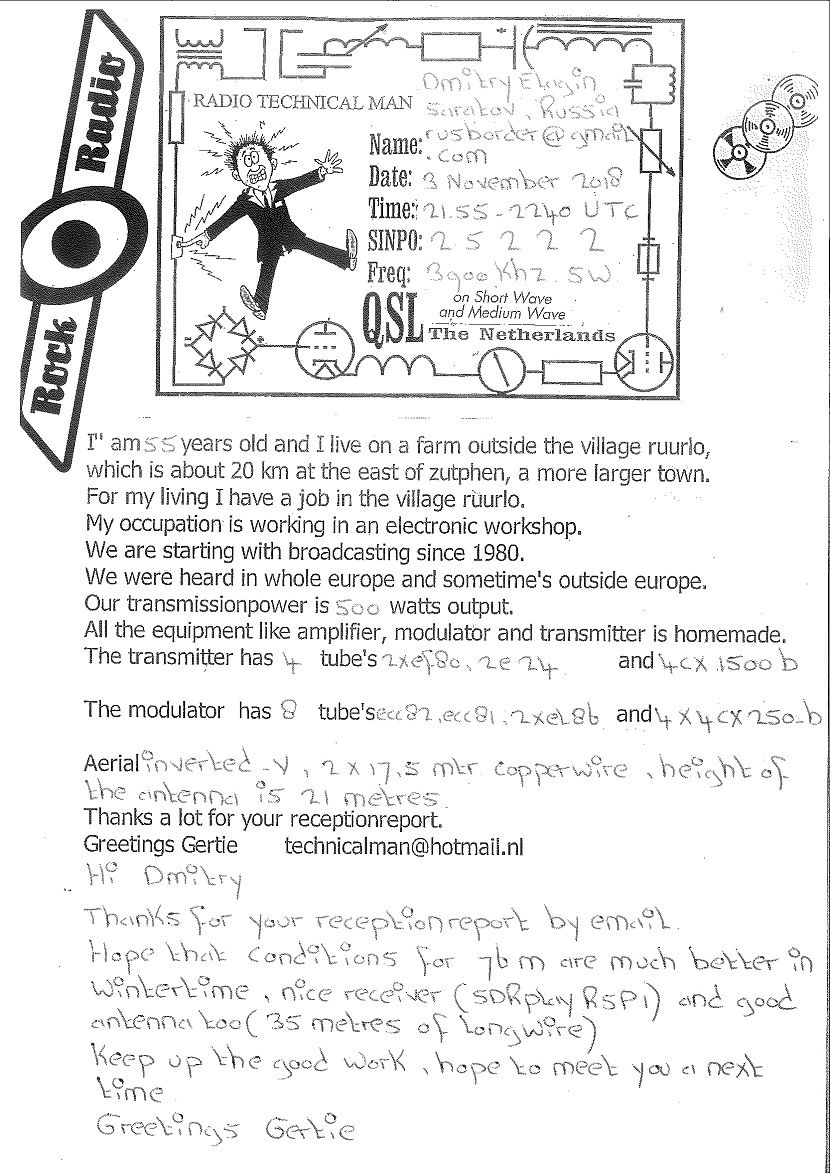 Rock Radio
RADIO TECHNICAL MAN
Dmitry Elagin
Saratov, Russia
Name: rusborder@gmail
.com
Date: 3 November 2018
Time: 21.55 - 2240 UTC
SINPO: 2 5 2 2 2
Freq: 3900 Khz. SW
QSL on Short Wave
and Medium Wave
The Netherlands
I" am 55 years old and I live on a farm outside the village ruurlo,
which is about 20 km at the east of zutphen, a more larger town.
For my living I have a job in the village ruurlo.
My occupation is working in an electronic workshop.
We are starting with broadcasting since 1980.
We were heard in whole europe and sometime's outside europe.
Our transmissionpower is 500 watts output.
All the equipment like amplifier, modulator and transmitter is homemade.
The transmitter has 4 tube's 2xef80, 2e24 and 4cx 1500 b
The modulator has 8 tube's ecc82, ecc81, 2xel86 and 4 x 4cx250-b
Aerial inverted -V, 2 x 17,5 mtr. copperwire, height of
the antenna is 21 metres.
Thanks a lot for your receptionreport.
Greetings Gertie technicalman@hotmail.nl
Hi Dmitry
Thanks for your receptionreport by email.
Hope that conditions for 76 m are much better in
wintertime, nice receiver (SDRplay RSP1) and good
antenna too (35 metres of longwire)
Keep up the good work, hope to meet you a next
time
Greetings Gertie